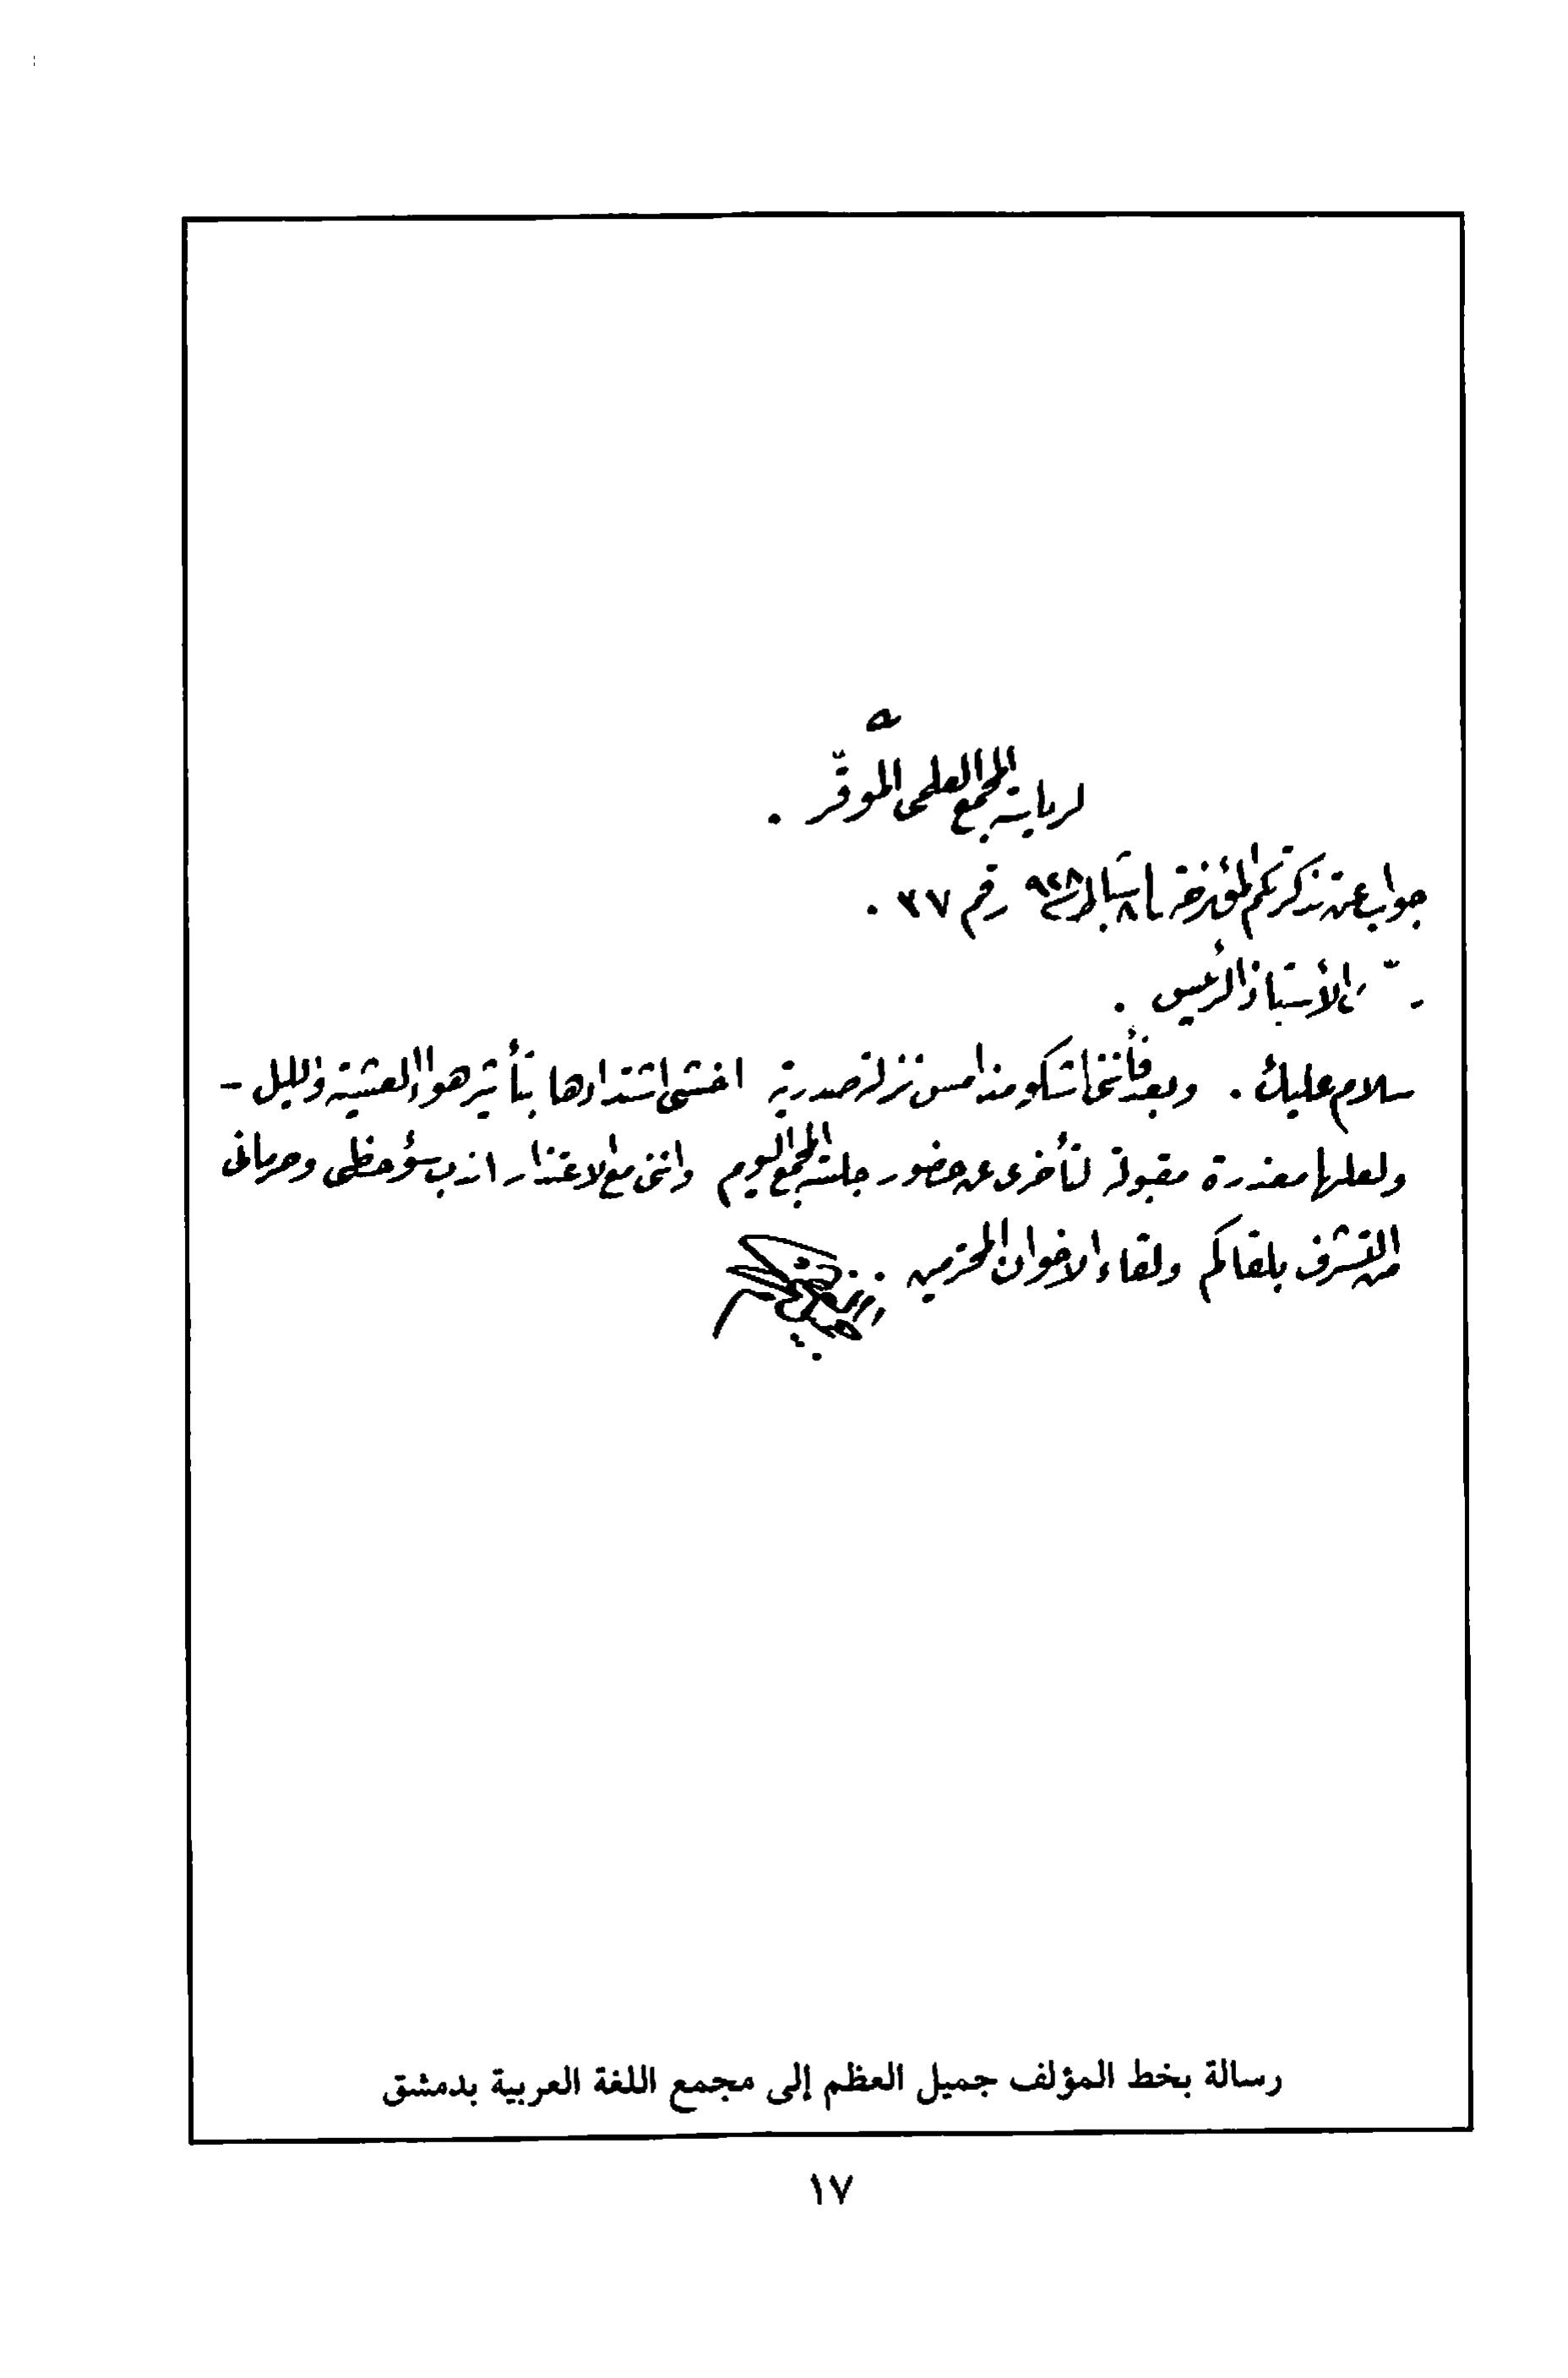 لرياسة المجمع العلمي الموقّر .
جواب عن تذكرتكم المؤرخة ٨ شباط سنة ٩٢٨ رقم ٣٧ .
الأستاذ الرئيس .
سلام عليك . وبعد فأنني اشكو منذ امس نزلة صدرية اخشى اشتدادها بتأثير هواء العشية والليل –
ولعلها معذرة مقبولة لتأخري عن حضور جلسة المجمع اليوم وانني مع الاعتذار اندب سؤ حظي وحرماني
من التشرف بلقاكم ولقاء الاخوان المحترمين
رسالة بخط المؤلف جميل العظم إلى مجمع اللغة العربية بدمشق
١٧